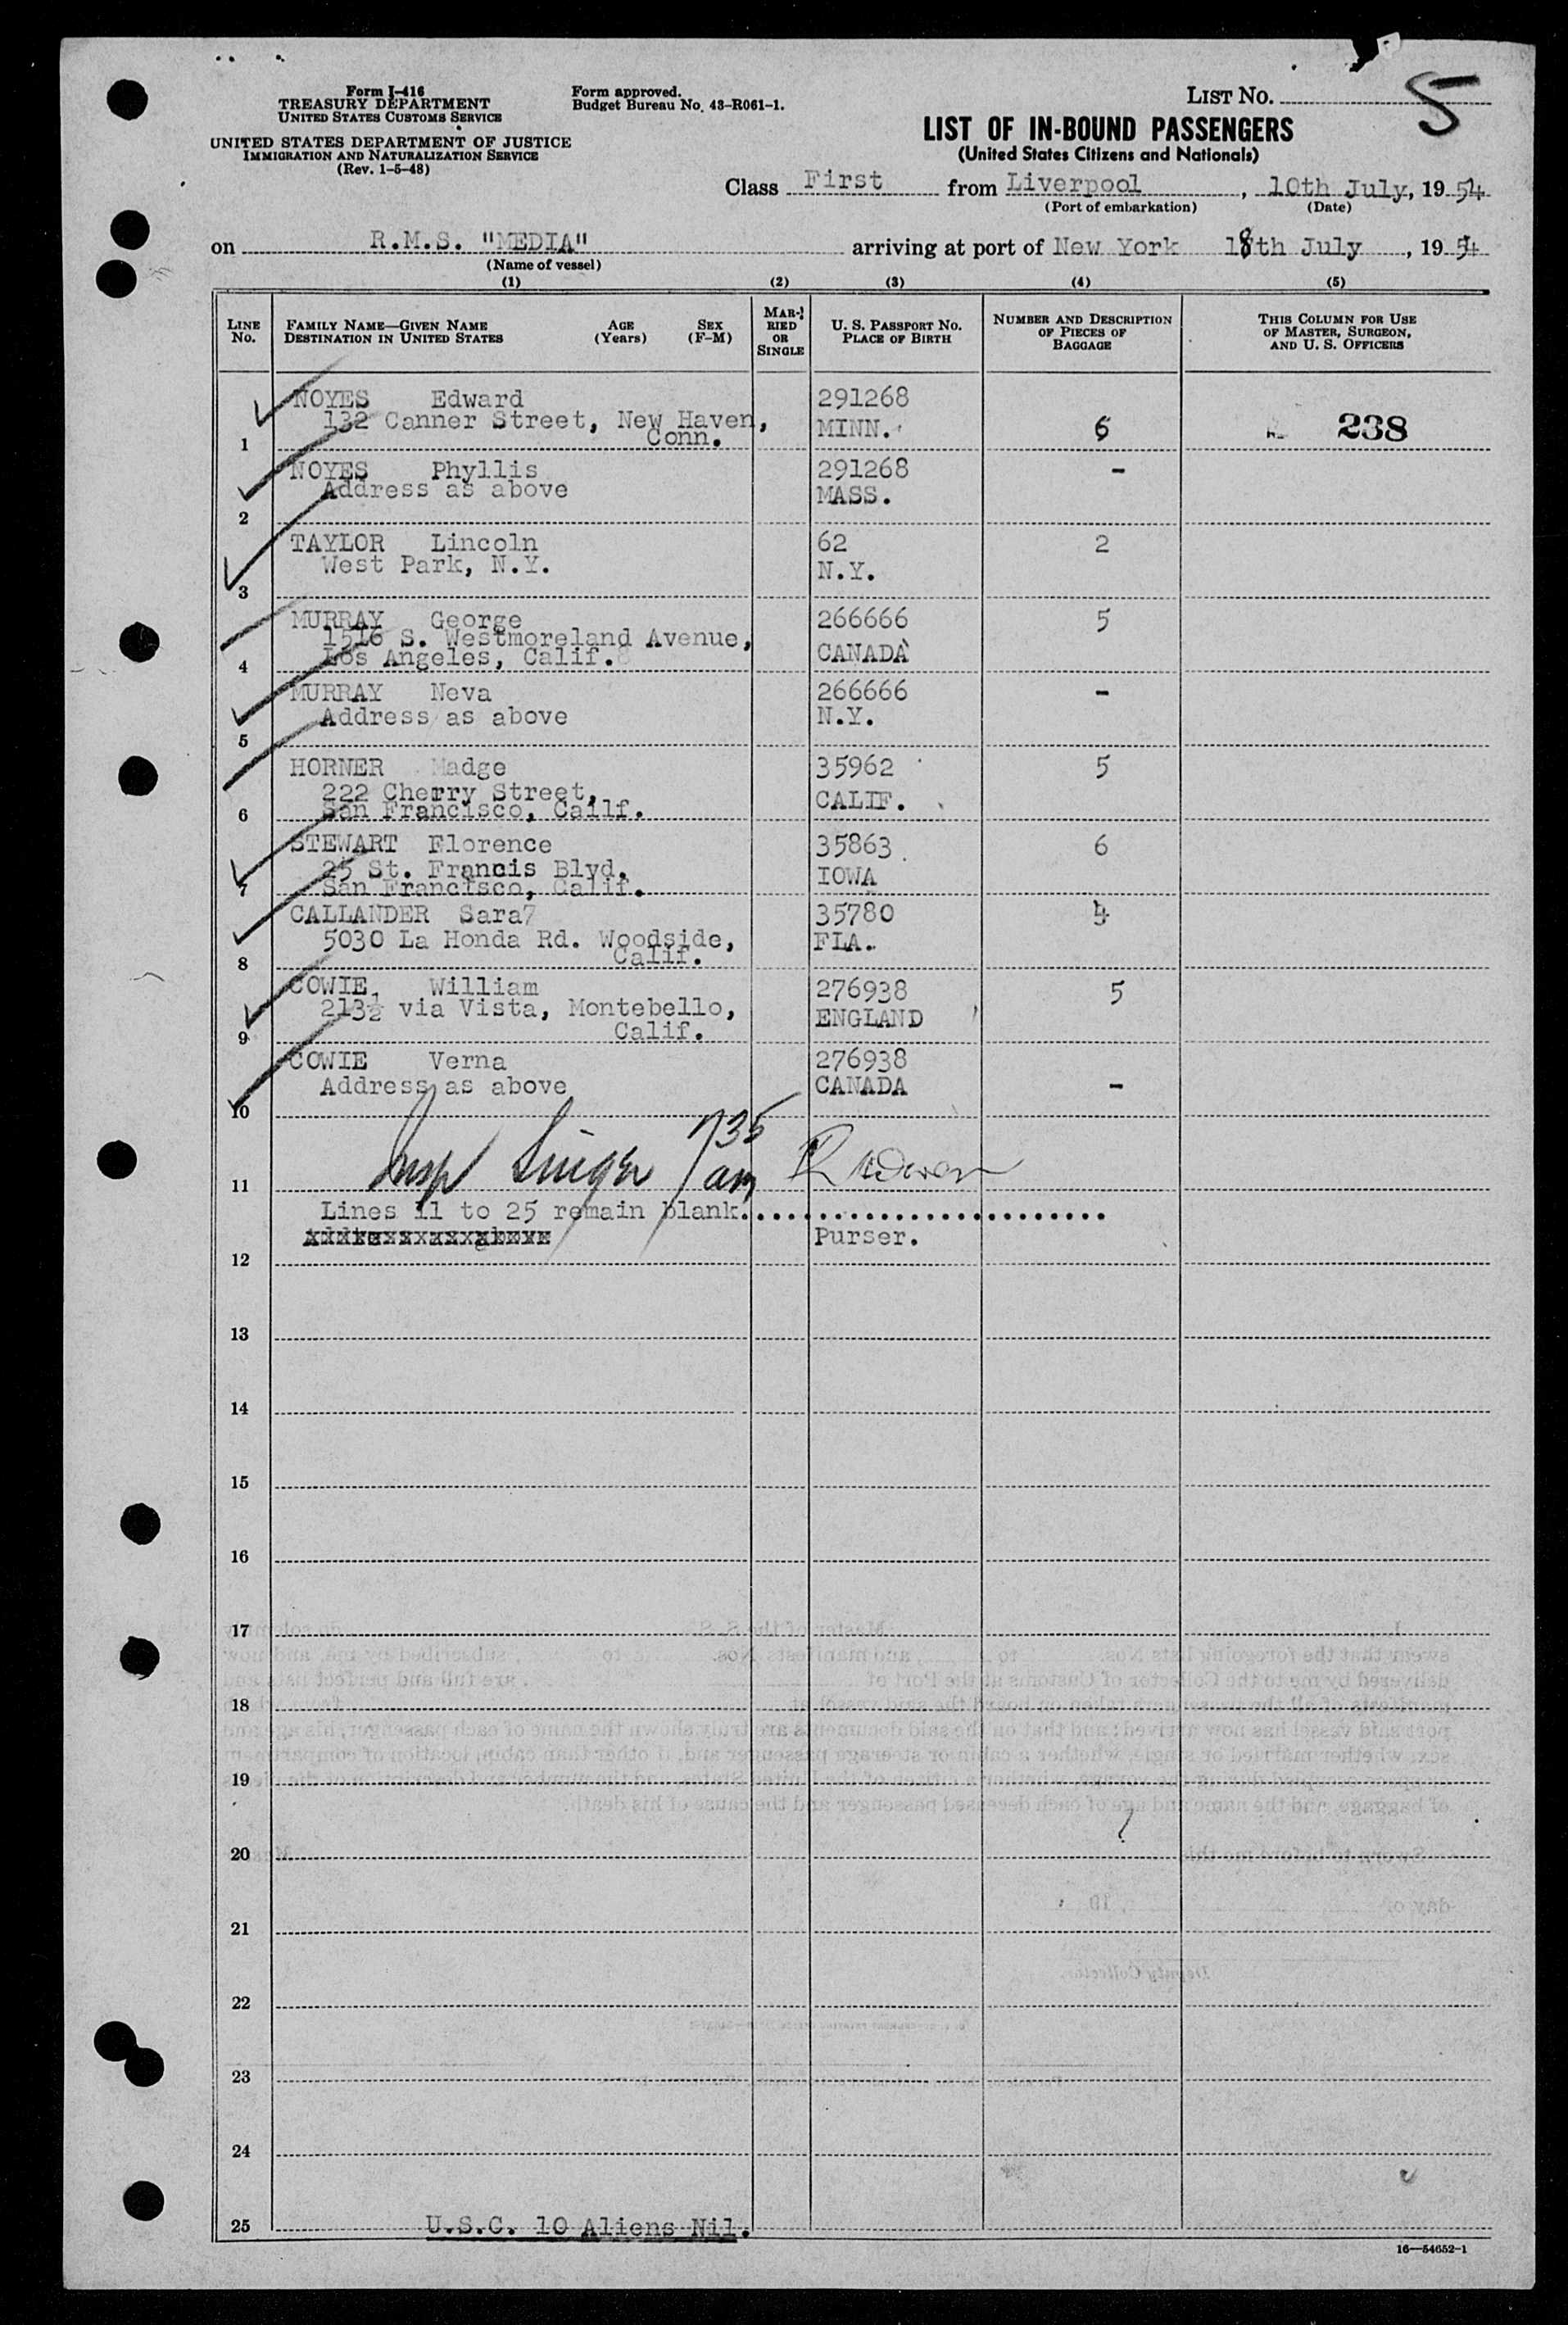 Form I-416
TREASURY DEPARTMENT
UNITED STATES CUSTOMS SERVICE
UNITED STATES DEPARTMENT OF JUSTICE
IMMIGRATION AND NATURALIZATION SERVICE
(Rev. 1-5-48)
Form approved.
Budget Bureau No. 43-R061-1.
LIST NO. 5
LIST OF IN-BOUND PASSENGERS
(United States Citizens and Nationals)
Class First from Liverpool, 10th July, 1954
(Port of embarkation) (Date)
on R.M.S. "MEDIA" arriving at port of New York 18th July, 1954
(Name of vessel)
(1) (2) (3) (4) (5)
LINE NO. FAMILY NAME—GIVEN NAME DESTINATION IN UNITED STATES AGE (Years) SEX (F-M) MARRIED OR SINGLE U. S. PASSPORT NO. PLACE OF BIRTH NUMBER AND DESCRIPTION OF PIECES OF BAGGAGE THIS COLUMN FOR USE OF MASTER, SURGEON, AND U. S. OFFICERS
NOYES Edward 291268
132 Canner Street, New Haven, MINN. 6 238
1 Conn.
NOYES Phyllis 291268 -
Address as above MASS.
2
TAYLOR Lincoln 62 2
West Park, N.Y. N.Y.
3
MURRAY George 266666 5
1516 S. Westmoreland Avenue, CANADA
4 Los Angeles, Calif.
MURRAY Neva 266666 -
Address as above N.Y.
5
HORNER Madge 35962 5
222 Cherry Street, CALIF.
6 San Francisco, Cailf.
STEWART Florence 35863 6
25 St. Francis Blvd. IOWA
7 San Francisco, Calif.
CALLANDER Sara7 35780 4
5030 La Honda Rd. Woodside, FLA.
8 Calif.
COWIE, William 276938 5
213½ via Vista, Montebello, ENGLAND
9 Calif.
COWIE Verna 276938
Address as above CANADA -
10
Insp Singer 735 am
11
Lines 11 to 25 remain blank.
Purser.
12
13
14
15
16
17
18
19
20
21
22
23
24
25 U.S.C. 10 Aliens Nil.
16—54652-1